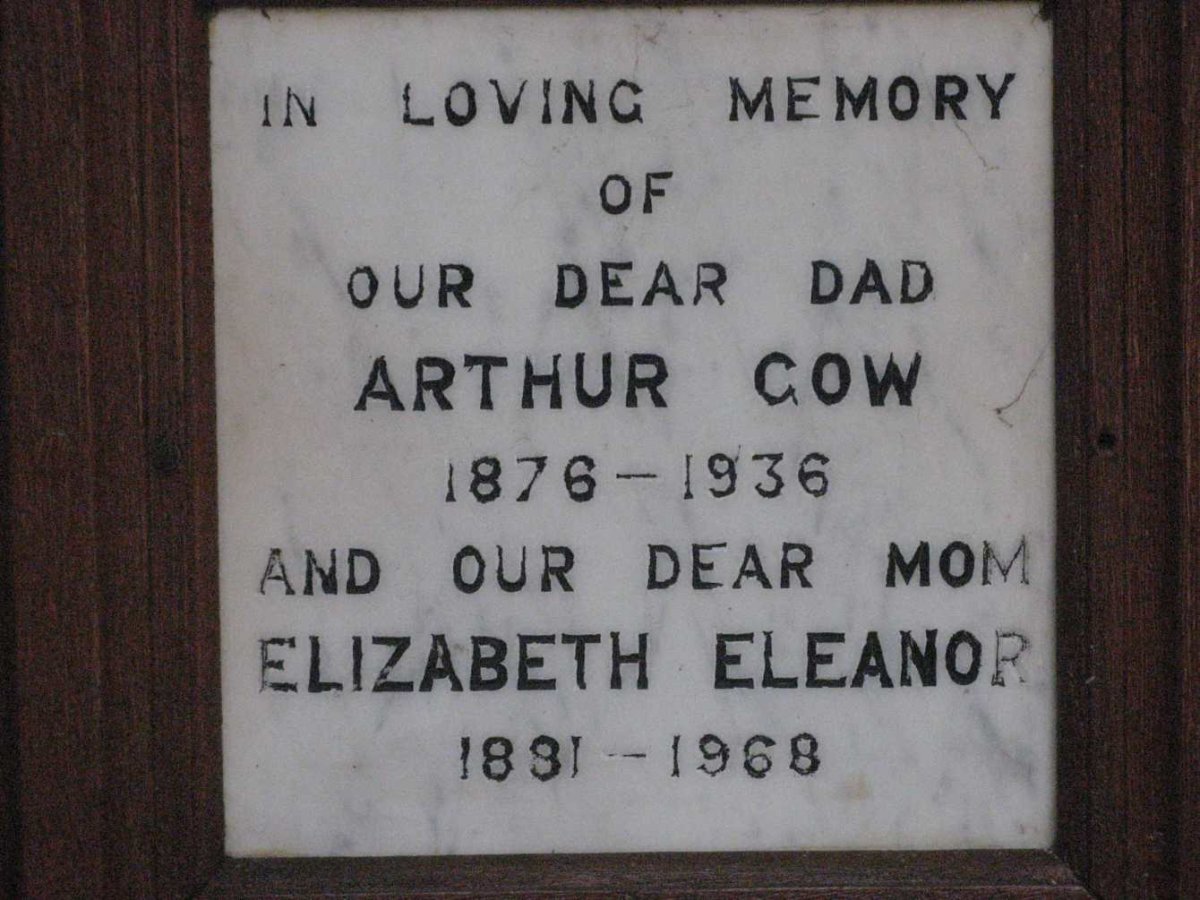 IN LOVING MEMORY
OF
OUR DEAR DAD
ARTHUR GOW
1876 — 1936
AND OUR DEAR MOM
ELIZABETH ELEANOR
1881 — 1968